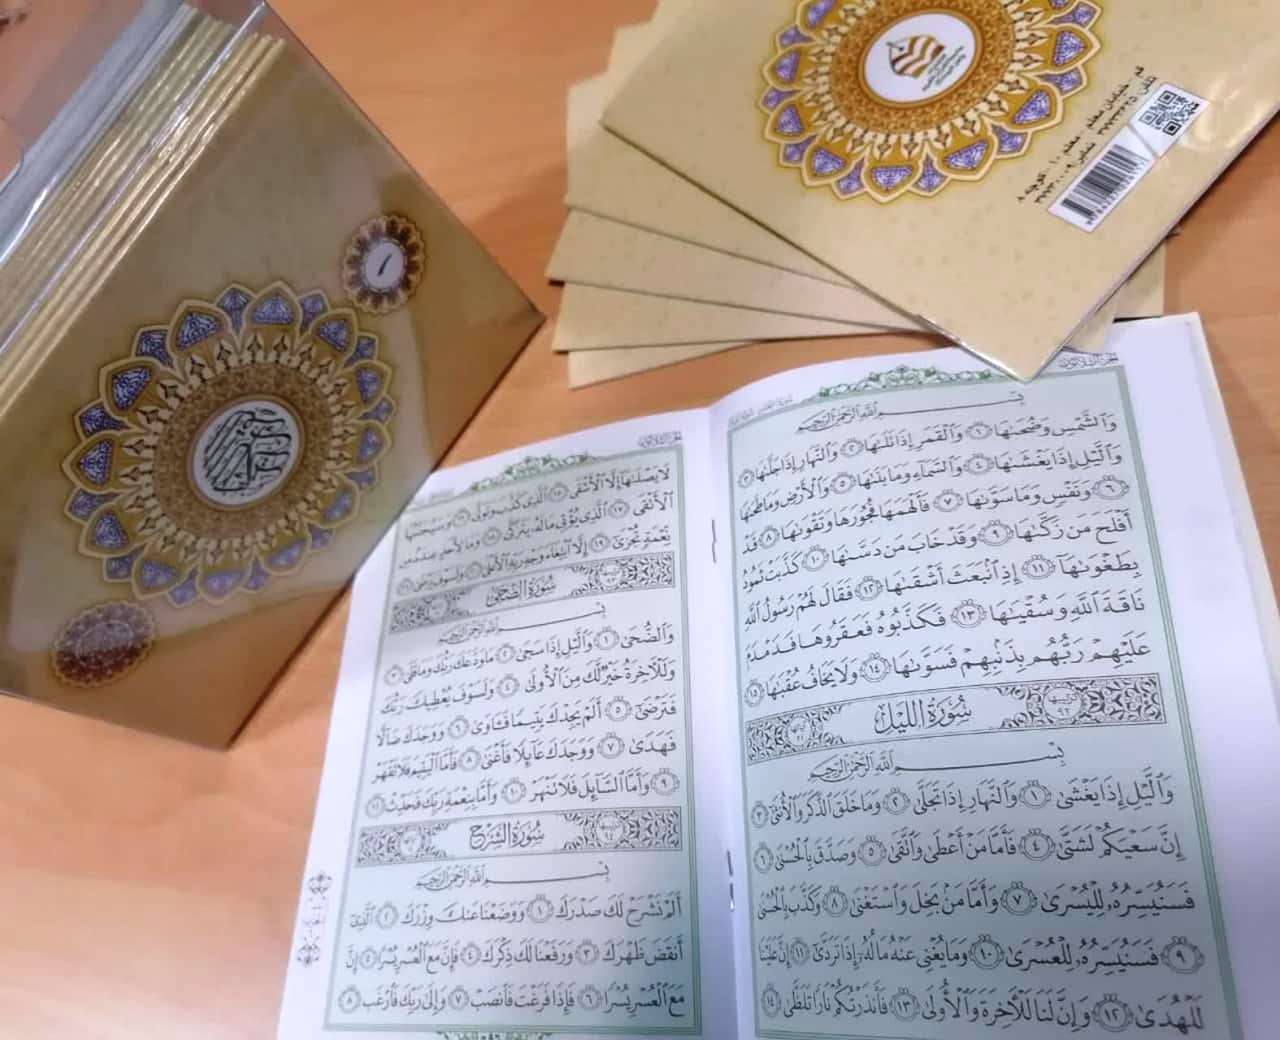 ١
القرآن الكريم
قم - خیابان معلم - معلم ١٠ - کوچه ٨
تلفن
نمابر
سورة الشمس
بِسْمِ اللَّهِ الرَّحْمَٰنِ الرَّحِيمِ
وَالشَّمْسِ وَضُحَىٰهَا ١ وَالْقَمَرِ إِذَا تَلَىٰهَا ٢ وَالنَّهَارِ إِذَا جَلَّىٰهَا ٣
وَاللَّيْلِ إِذَا يَغْشَىٰهَا ٤ وَالسَّمَاءِ وَمَا بَنَىٰهَا ٥ وَالْأَرْضِ وَمَا طَحَىٰهَا
٦ وَنَفْسٍ وَمَا سَوَّىٰهَا ٧ فَأَلْهَمَهَا فُجُورَهَا وَتَقْوَىٰهَا ٨ قَدْ
أَفْلَحَ مَن زَكَّىٰهَا ٩ وَقَدْ خَابَ مَن دَسَّىٰهَا ١٠ كَذَّبَتْ ثَمُودُ
بِطَغْوَىٰهَا ١١ إِذِ انبَعَثَ أَشْقَىٰهَا ١٢ فَقَالَ لَهُمْ رَسُولُ اللَّهِ
نَاقَةَ اللَّهِ وَسُقْيَىٰهَا ١٣ فَكَذَّبُوهُ فَعَقَرُوهَا فَدَمْدَمَ
عَلَيْهِمْ رَبُّهُم بِذَنبِهِمْ فَسَوَّىٰهَا ١٤ وَلَا يَخَافُ عُقْبَىٰهَا ١٥
سُورَةُ اللَّيْلِ
بِسْمِ اللَّهِ الرَّحْمَٰنِ الرَّحِيمِ
وَاللَّيْلِ إِذَا يَغْشَىٰ ١ وَالنَّهَارِ إِذَا تَجَلَّىٰ ٢ وَمَا خَلَقَ الذَّكَرَ وَالْأُنثَىٰ ٣
إِنَّ سَعْيَكُمْ لَشَتَّىٰ ٤ فَأَمَّا مَنْ أَعْطَىٰ وَاتَّقَىٰ ٥ وَصَدَّقَ بِالْحُسْنَىٰ ٦
فَسَنُيَسِّرُهُ لِلْيُسْرَىٰ ٧ وَأَمَّا مَن بَخِلَ وَاسْتَغْنَىٰ ٨ وَكَذَّبَ بِالْحُسْنَىٰ
٩ فَسَنُيَسِّرُهُ لِلْعُسْرَىٰ ١٠ وَمَا يُغْنِي عَنْهُ مَالُهُ إِذَا تَرَدَّىٰ ١١ إِنَّ عَلَيْنَا
لَلْهُدَىٰ ١٢ وَإِنَّ لَنَا لَلْآخِرَةَ وَالْأُولَىٰ ١٣ فَأَنذَرْتُكُمْ نَارًا تَلَظَّىٰ ١٤
لَا يَصْلَىٰهَا إِلَّا الْأَشْقَى ١٥ الَّذِي كَذَّبَ وَتَوَلَّىٰ ١٦ وَسَيُجَنَّبُهَا
الْأَتْقَى ١٧ الَّذِي يُؤْتِي مَالَهُ يَتَزَكَّىٰ ١٨ وَمَا لِأَحَدٍ عِندَهُ مِن
نِّعْمَةٍ تُجْزَىٰ ١٩ إِلَّا ابْتِغَاءَ وَجْهِ رَبِّهِ الْأَعْلَىٰ ٢٠ وَلَسَوْفَ يَرْضَىٰ ٢١
سُورَةُ الضُّحَىٰ
بِسْمِ اللَّهِ الرَّحْمَٰنِ الرَّحِيمِ
وَالضُّحَىٰ ١ وَاللَّيْلِ إِذَا سَجَىٰ ٢ مَا وَدَّعَكَ رَبُّكَ وَمَا قَلَىٰ ٣
وَلَلْآخِرَةُ خَيْرٌ لَّكَ مِنَ الْأُولَىٰ ٤ وَلَسَوْفَ يُعْطِيكَ رَبُّكَ
فَتَرْضَىٰ ٥ أَلَمْ يَجِدْكَ يَتِيمًا فَآوَىٰ ٦ وَوَجَدَكَ ضَالًّا
فَهَدَىٰ ٧ وَوَجَدَكَ عَائِلًا فَأَغْنَىٰ ٨ فَأَمَّا الْيَتِيمَ فَلَا تَقْهَرْ
٩ وَأَمَّا السَّائِلَ فَلَا تَنْهَرْ ١٠ وَأَمَّا بِنِعْمَةِ رَبِّكَ فَحَدِّثْ ١١
سُورَةُ الشَّرْحِ
بِسْمِ اللَّهِ الرَّحْمَٰنِ الرَّحِيمِ
أَلَمْ نَشْرَحْ لَكَ صَدْرَكَ ١ وَوَضَعْنَا عَنكَ وِزْرَكَ ٢ الَّذِي
أَنقَضَ ظَهْرَكَ ٣ وَرَفَعْنَا لَكَ ذِكْرَكَ ٤ فَإِنَّ مَعَ الْعُسْرِ يُسْرًا ٥ إِنَّ
مَعَ الْعُسْرِ يُسْرًا ٦ فَإِذَا فَرَغْتَ فَانصَبْ ٧ وَإِلَىٰ رَبِّكَ فَارْغَب ٨